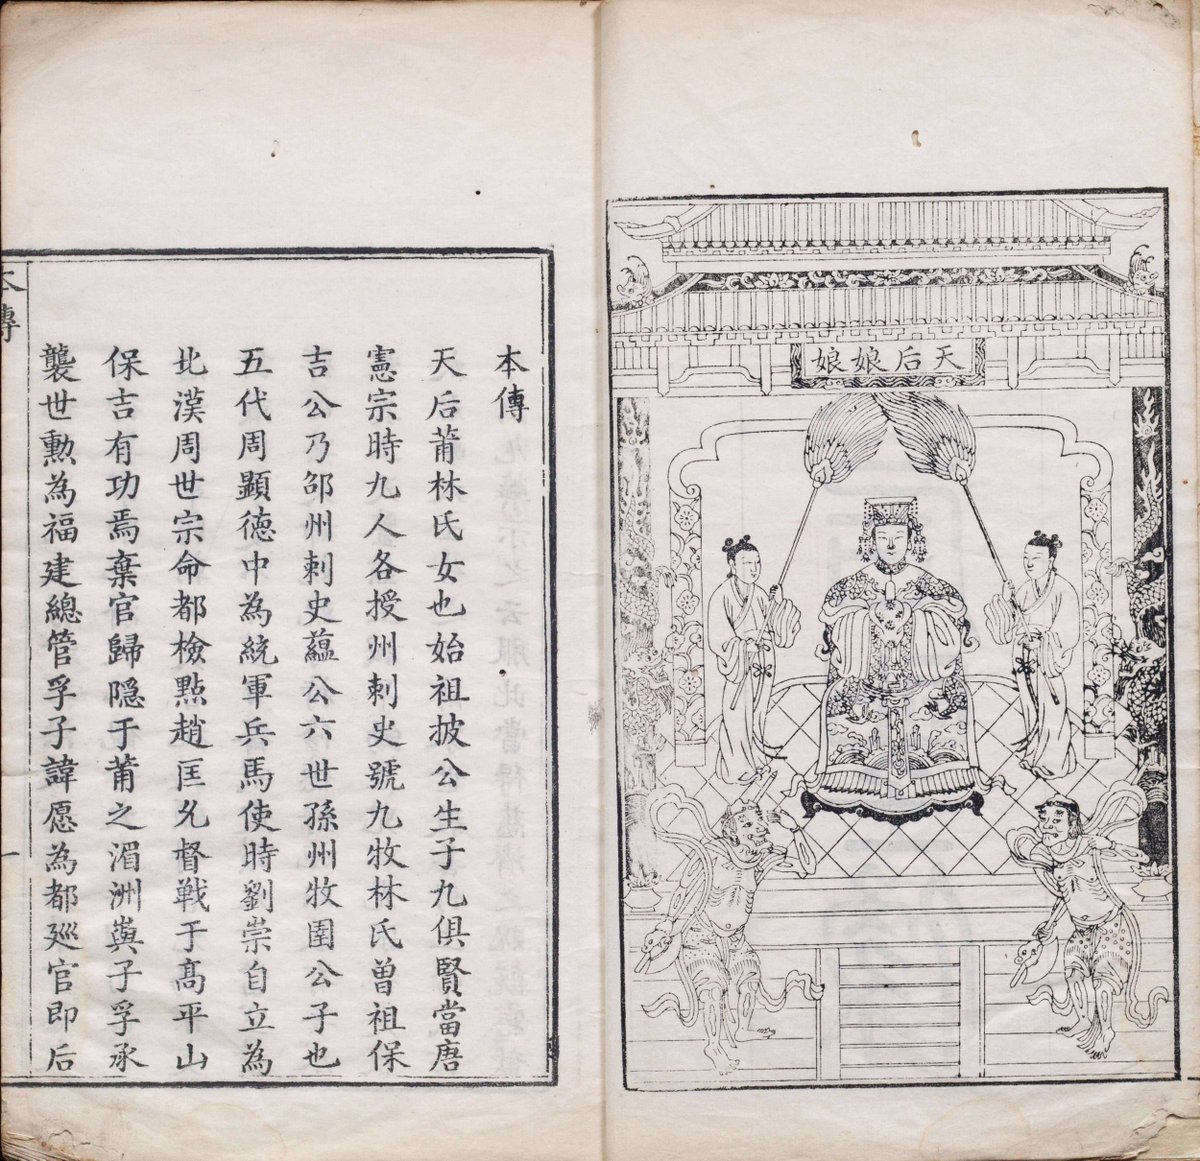 天后娘娘
本傳
天后莆林氏女也始祖披公生子九俱賢當唐
憲宗時九人各授州刺史號九牧林氏曾祖保
吉公乃邵州刺史蘊公六世孫州牧圉公子也
五代周顯德中為統軍兵馬使時劉崇自立為
北漢周世宗命都檢點趙匡允督戰于高平山
保吉有功焉棄官歸隱于莆之湄洲與子孚承
襲世勳為福建總管孚子諱愿為都廵官即后
本傳
一